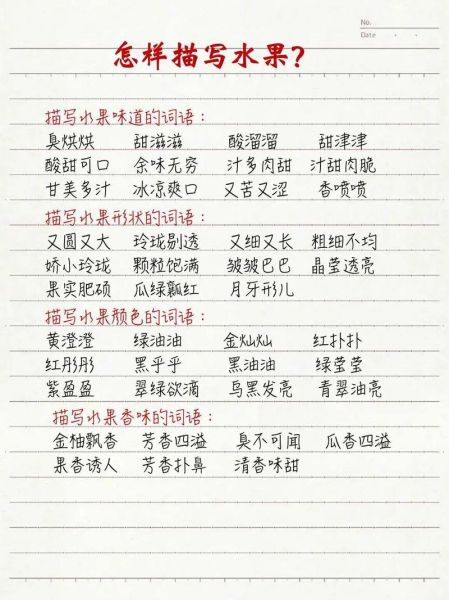 No.
Date
怎样描写水果？
描写水果味道的词语：
臭烘烘 甜滋滋 酸溜溜 甜津津
酸甜可口 余味无穷 汁多肉甜 汁甜肉脆
甘美多汁 冰凉爽口 又苦又涩 香喷喷
描写水果形状的词语：
又圆又大 玲珑剔透 又细又长 粗细不均
娇小玲珑 颗粒饱满 皱皱巴巴 晶莹透亮
果实肥硕 瓜绿瓢红 月牙形儿
描写水果颜色的词语：
黄澄澄 绿油油 金灿灿 红扑扑
红彤彤 黑乎乎 黑油油 绿莹莹
紫盈盈 翠绿欲滴 乌黑发亮 青翠油亮
描写水果香味的词语：
金柚飘香 芳香四溢 臭不可闻 瓜香四溢
果香诱人 芳香扑鼻 清香味甜